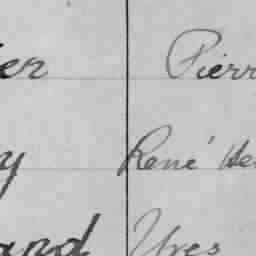 er Pierr
y René He
and Yves